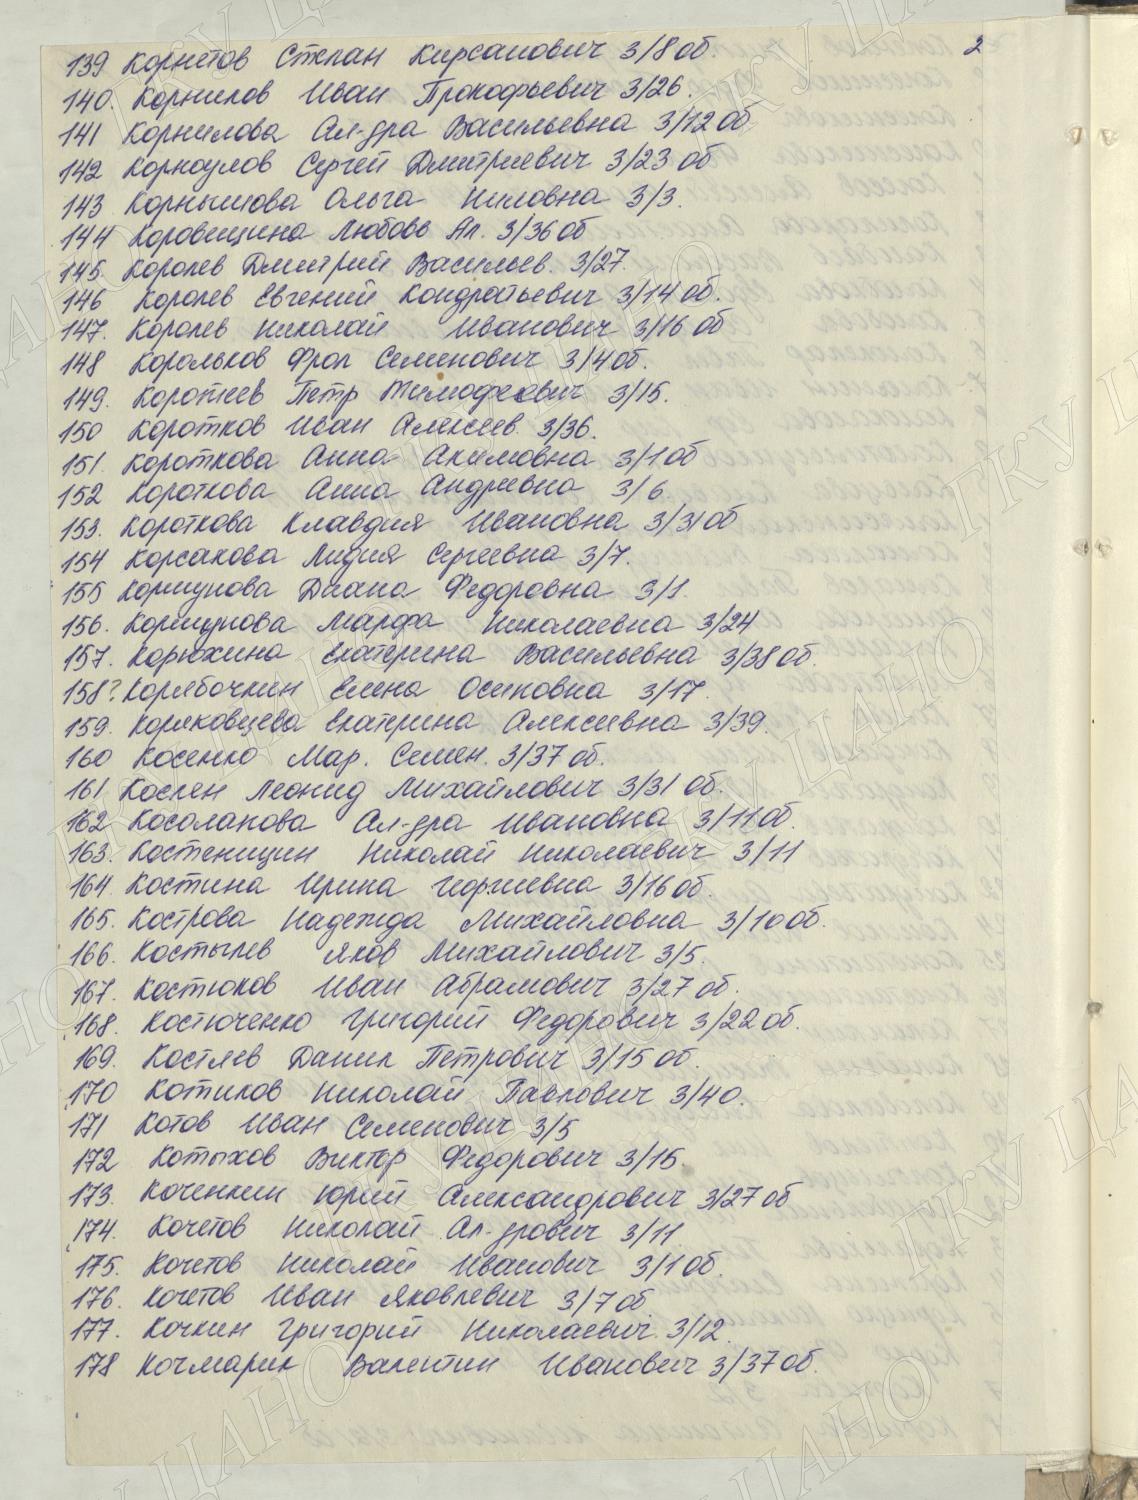 2
139 Корнетов Степан Кирсанович 3/8 об.
140. Корнилов Иван Прокофьевич 3/26.
141 Корнилова Ал-дра Васильевна 3/12 об
142 Корноулов Сергей Дмитриевич 3/23 об
143 Корнышова Ольга Ниловна 3/3.
144 Коровицина Любовь Ал. 3/36 об
145. Королев Дмитрий Васильев. 3/27.
146 Королев Евгений Кондратьевич 3/14 об.
147. Королев Николай Иванович 3/16 об
148 Корольков Фрол Семенович 3/4 об.
149. Коротеев Петр Тимофеевич 3/15.
150 Коротков Иван Алексеев. 3/36.
151. Короткова Анна Акимовна 3/1 об
152 Короткова Анна Андреевна 3/6
153. Короткова Клавдия Ивановна 3/31 об
154 Корсакова Лидия Сергеевна 3/7.
155 Коршунова Диана Федоровна 3/1.
156. Коршунова Марфа Николаевна 3/24
157. Корюхина Екатерина Васильевна 3/38 об.
158? Корябочкин Елена Осиповна 3/17.
159. Коряковцева Екатерина Алексеевна 3/39.
160 Косенко Мар. Семен. 3/37 об.
161. Леонид Михайлович 3/31 об.
162 Косолапова Ал-дра Ивановна 3/11 об.
163. Костеницин Николай Николаевич 3/11
164. Костина Ирина Георгиевна 3/16 об.
165. Кострова Надежда Михайловна 3/10 об.
166. Костылев Яков Михайлович 3/5.
167. Костюков Иван Абрамович 3/27 об.
168. Костюченко Григорий Федорович 3/22 об.
169. Костяев Данил Петрович 3/15 об.
170 Котиков Николай Павлович 3/40.
171 Котов Иван Семенович 3/5
172 Котыхов Виктор Федорович 3/15.
173. Коченкин Юрий Александрович 3/27 об
174. Кочетов Николай Ал-дрович 3/11
175. Кочетов Николай Иванович 3/1 об.
176. Кочетов Иван Яковлевич 3/7 об.
177. Кочкин Григорий Николаевич. 3/12.
178 Кочмарик Валентин Иванович 3/37 об.
ГКУ ЦАНО